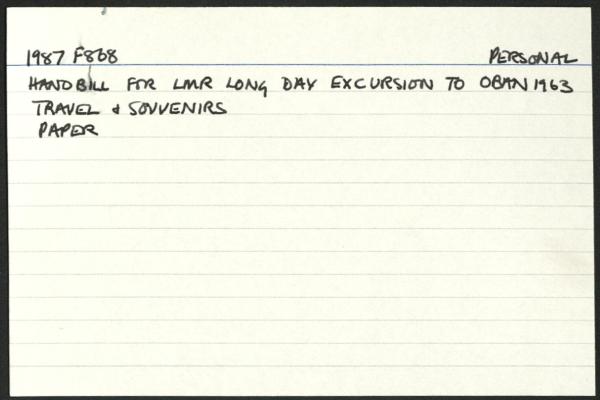 1987 F868 PERSONAL
HANDBILL FOR LMR LONG DAY EXCURSION TO OBAN 1963
TRAVEL & SOUVENIRS
PAPER